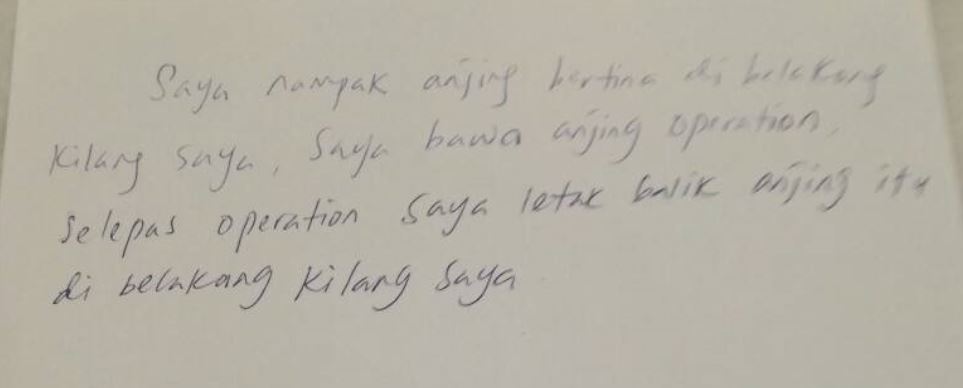 Saya nampak anjing bertina di belakang
Kilang saya, Saya bawa anjing operation,
Selepas operation Saya letak balik anjing itu
di belakang Kilang Saya